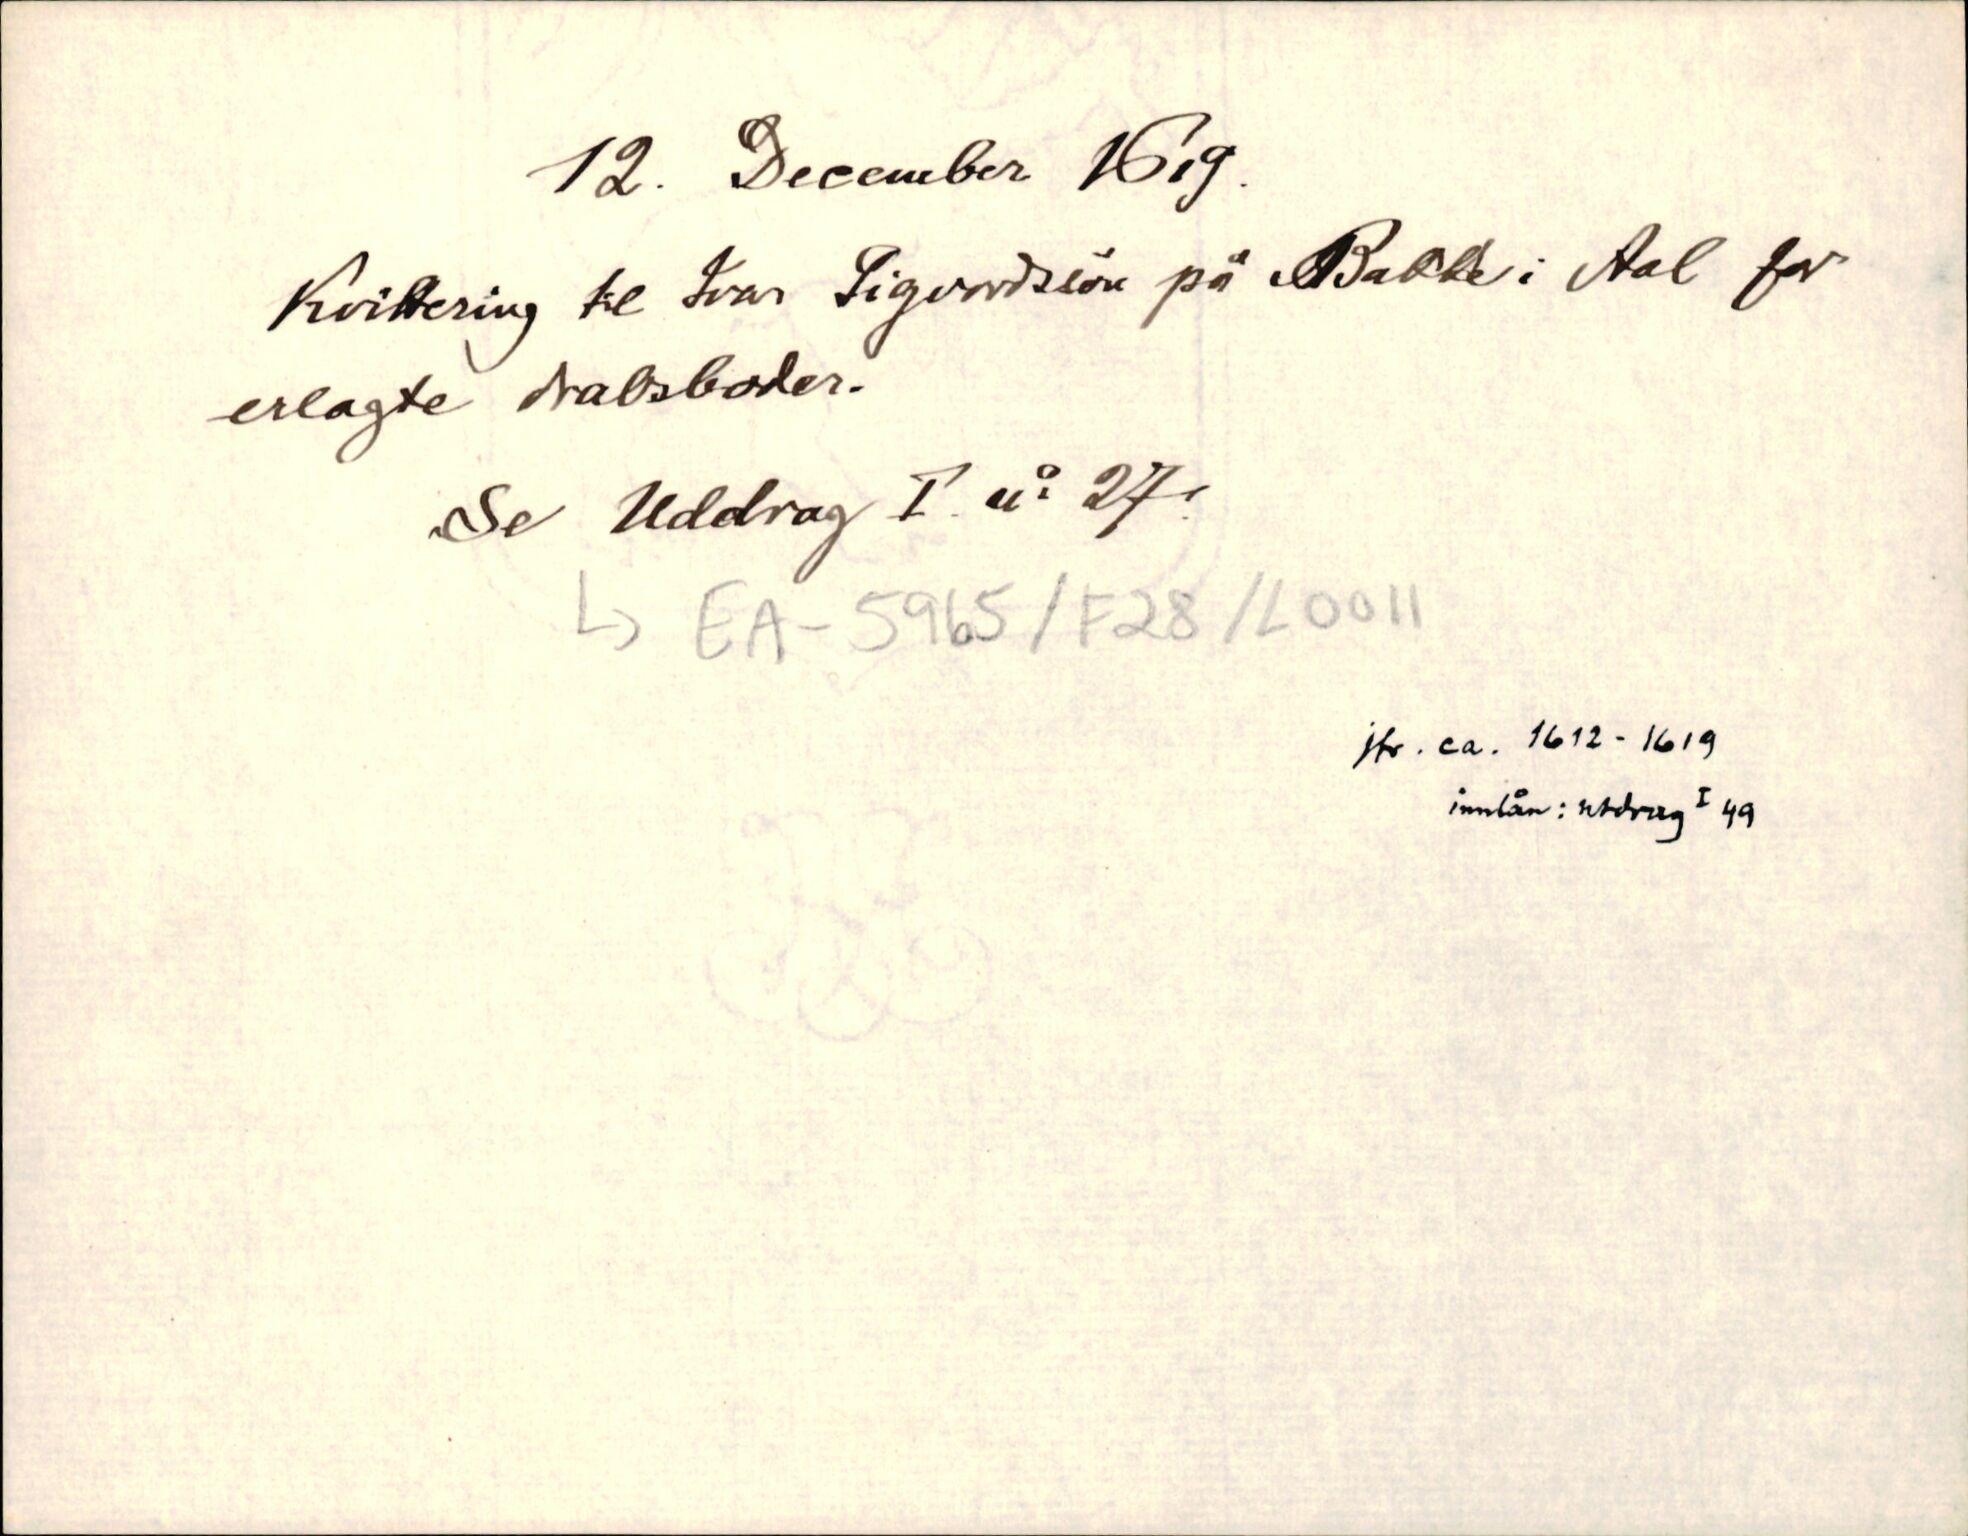 12. December 1619.
Kvittering til Ivar Sigvordssön på Bakke i Aal for
erlagte drabsboder.
Se Uddrag I. nº 27.
↳ EA-5965/F28/L0011
jfr. ca. 1612-1619
innlån: utdrag I 49